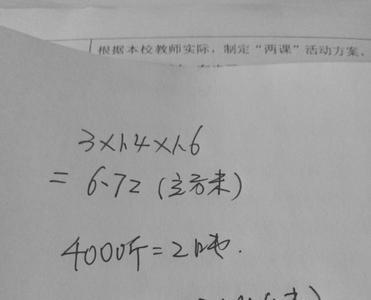 根据本校教师实际,制定“两课”活动方案、
3×1.4×1.6
=6.72(立方米)
4000斤=2吨.